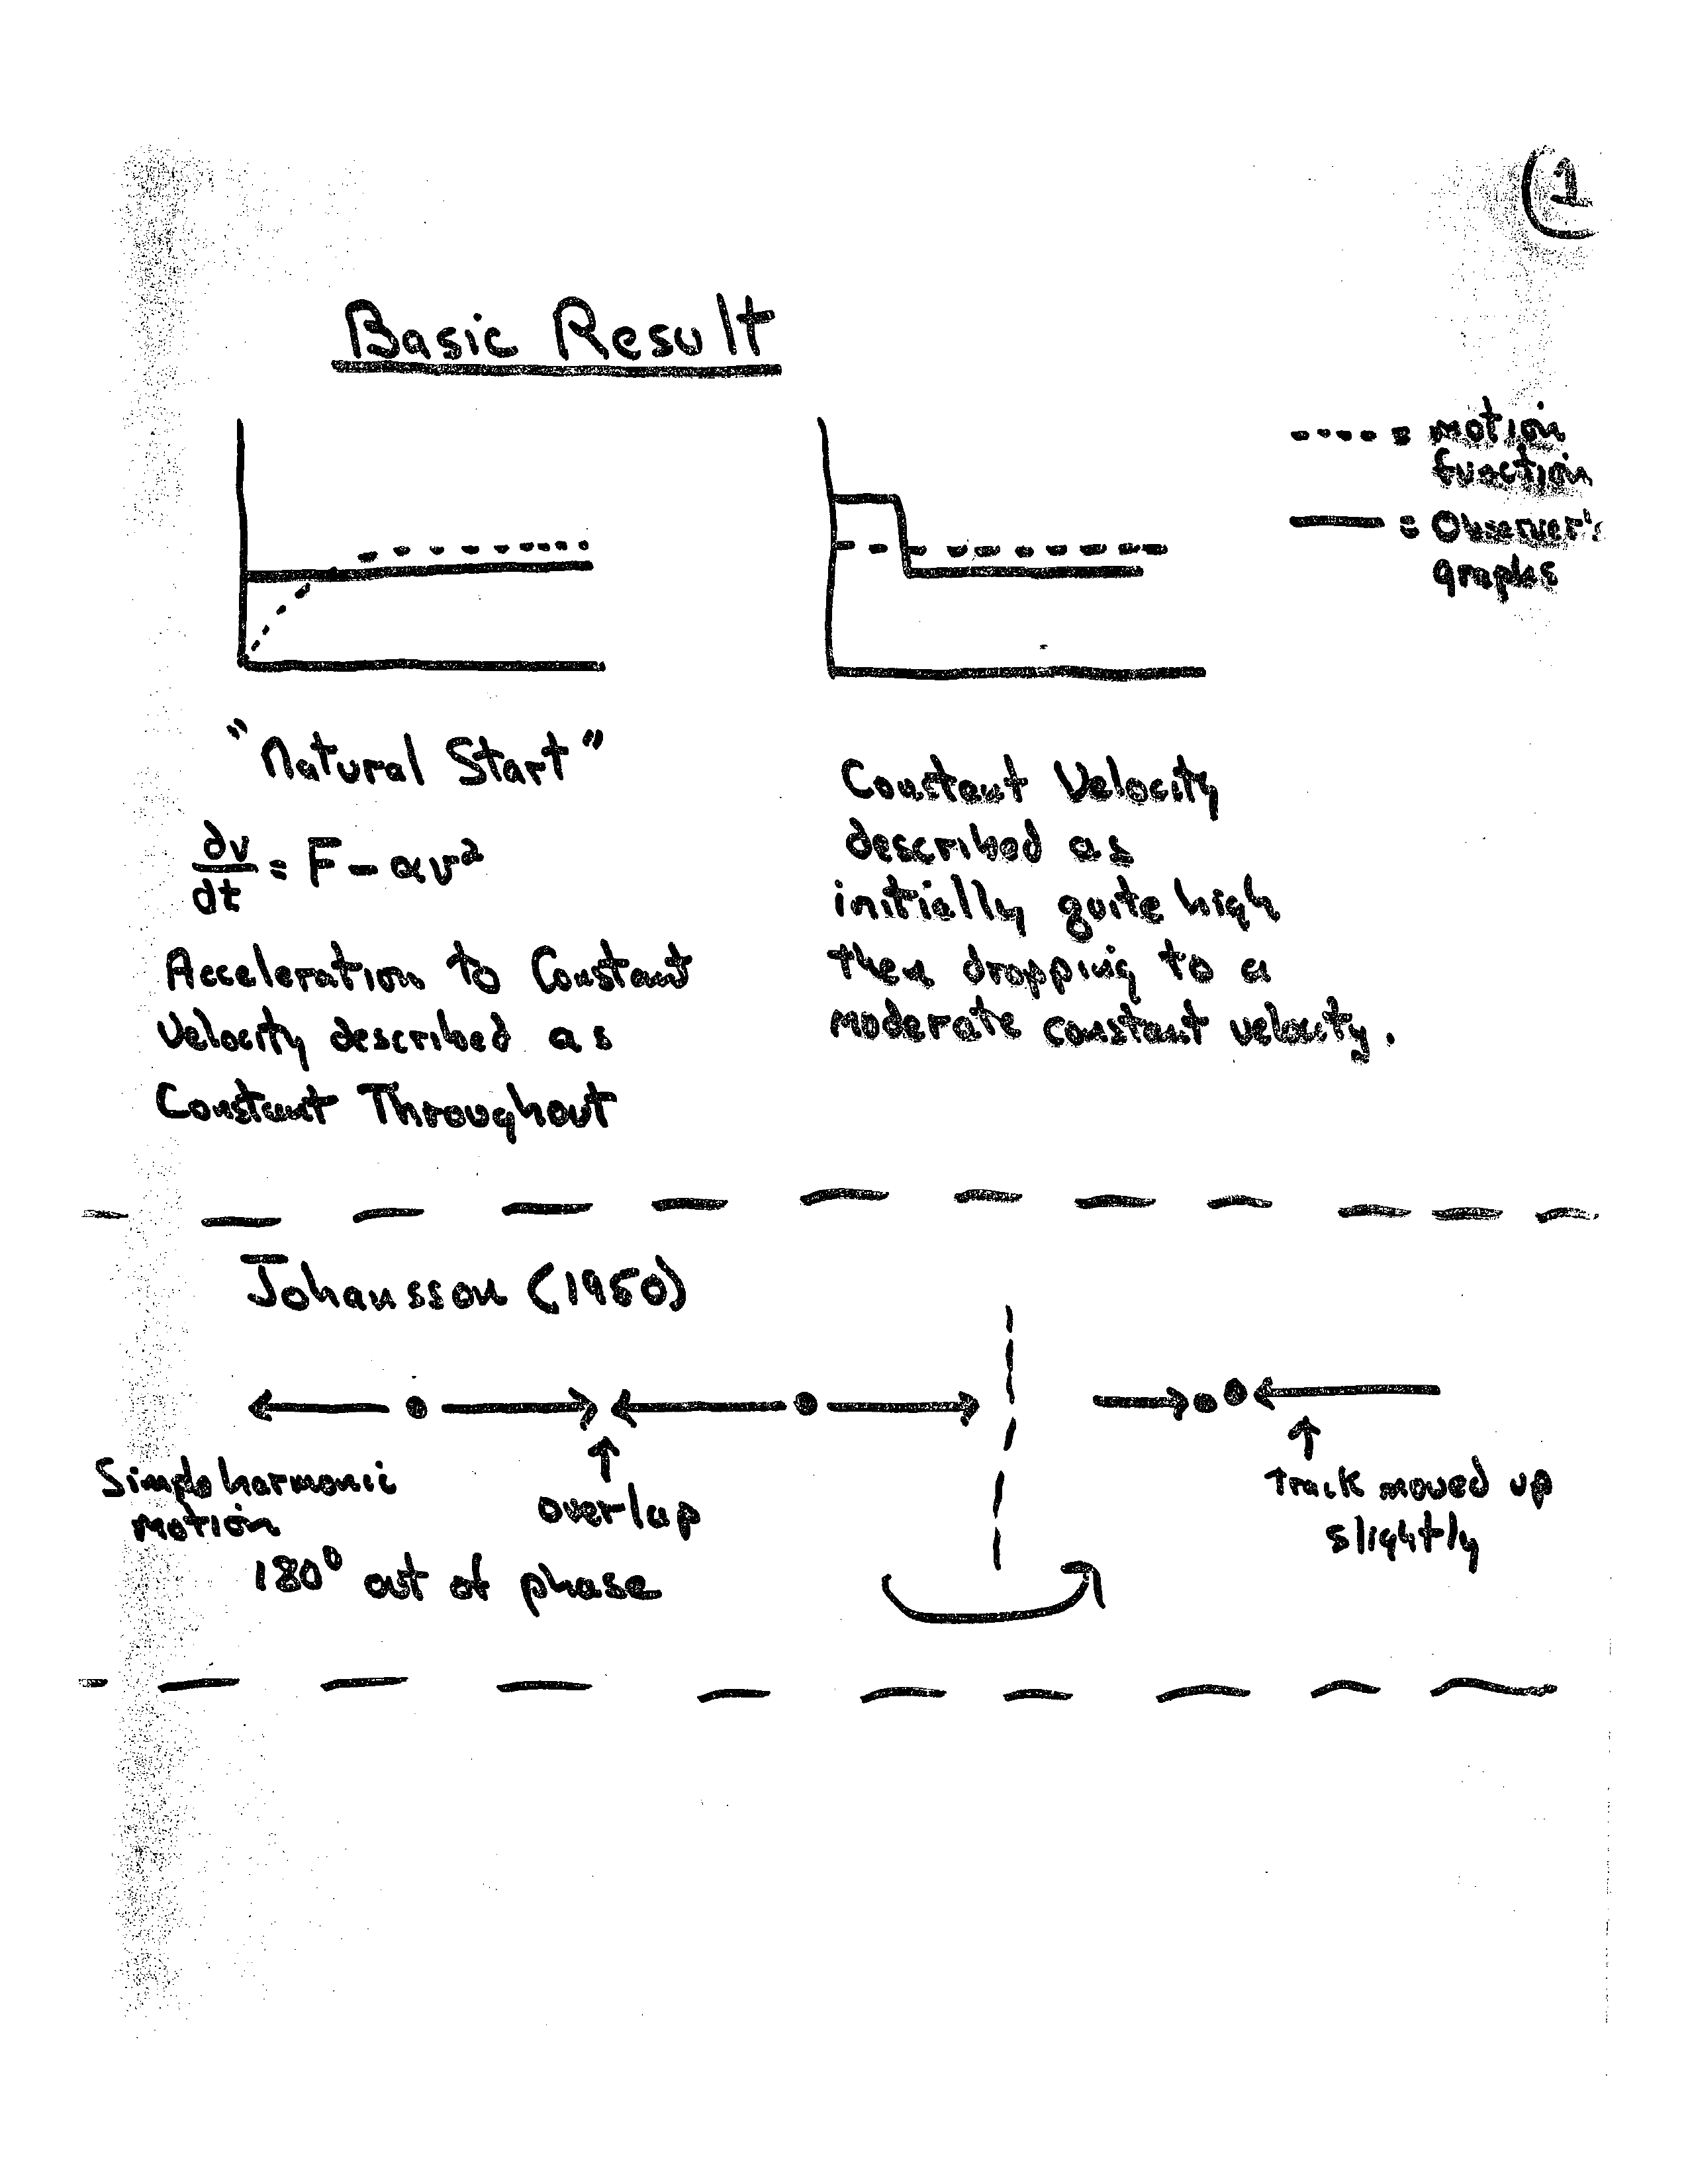 (1
Basic Result
= motion
function
= Observer's
graphs
"Natural Start"
dv/dt = F - αv²
Acceleration to Constant
Velocity described as
Constant Throughout
Constant Velocity
described as
initially quite high
then dropping to a
moderate constant velocity.
Johansson (1950)
Simple harmonic
motion
180° out of phase
overlap
Track moved up
slightly